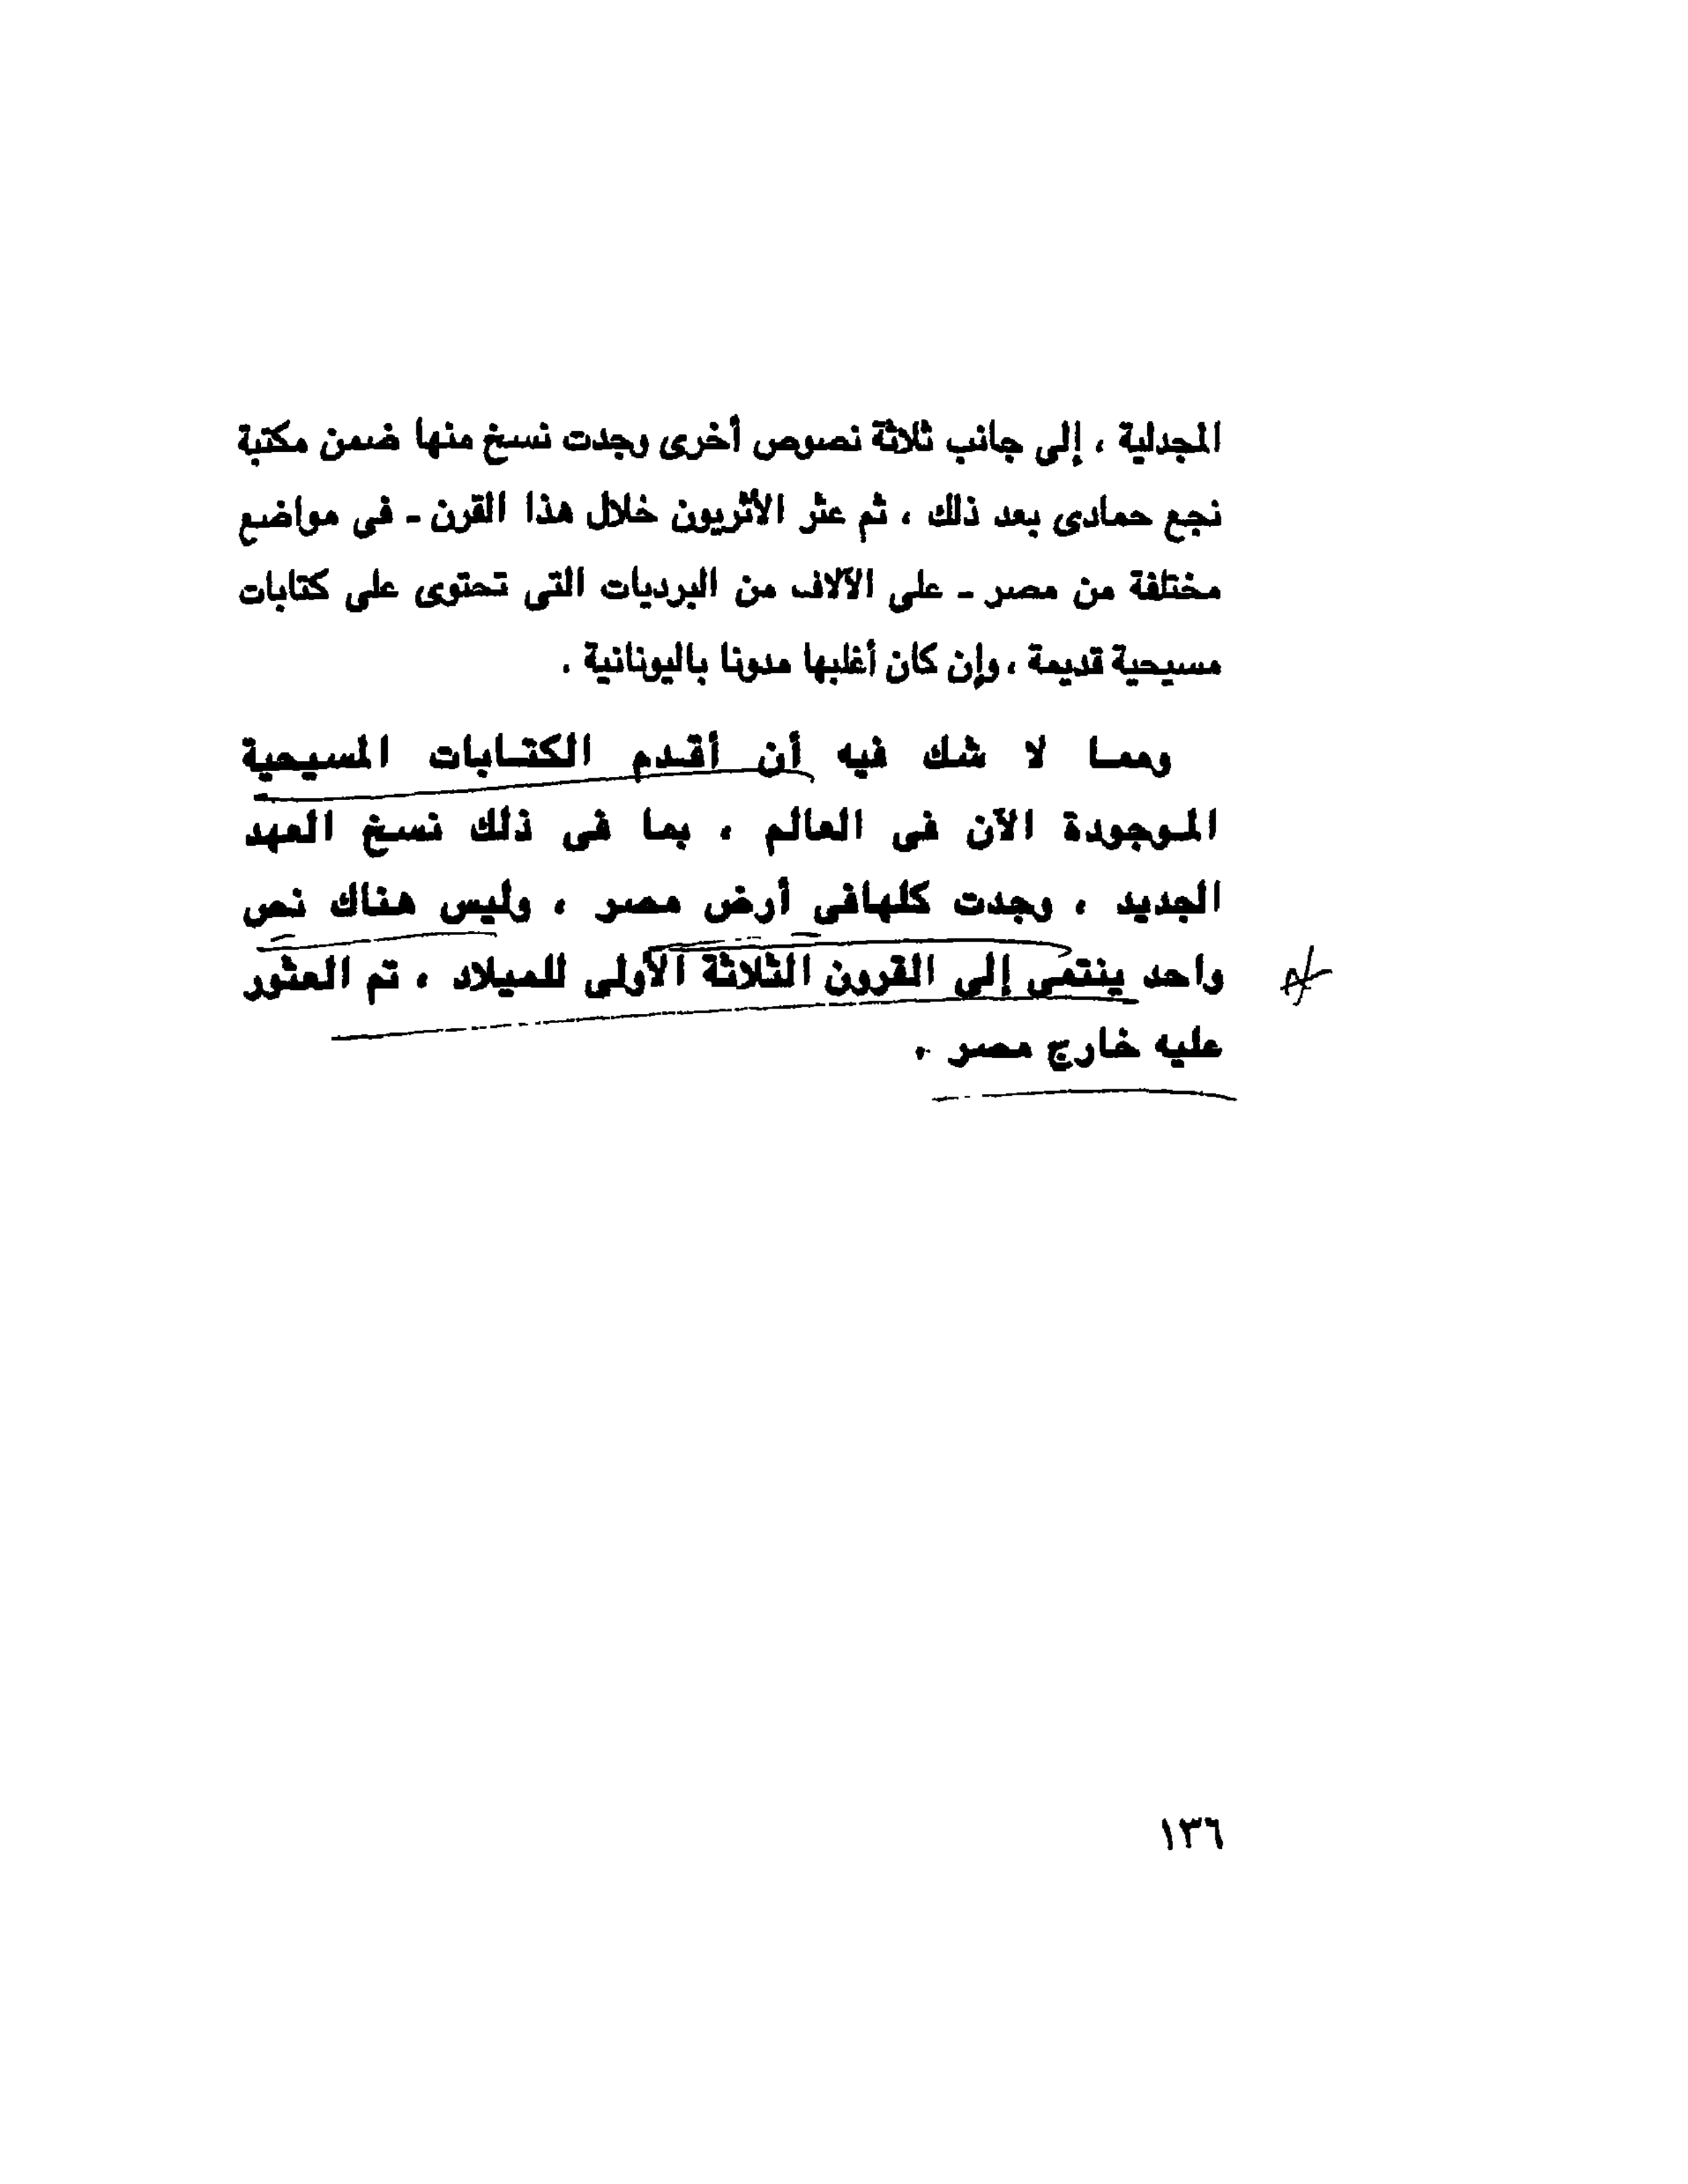 المجدلية ، إلى جانب ثلاثة نصوص أخرى وجدت نسخ منها ضمن مكتبة
نجع حمادى بعد ذلك ، ثم عثر الأثريون خلال هذا القرن ـ فى مواضع
مختلفة من مصر ـ على الآلاف من البرديات التى تحتوى على كتابات
مسيحية قديمة ، وإن كان أغلبها مدونا باليونانية .
ومما لا شك فيه أن أقدم الكتابات المسيحية
الموجودة الآن فى العالم ، بما فى ذلك نسخ العهد
الجديد ، وجدت كلهافى أرض مصر ، وليس هناك نص
واحد ينتمى إلى القرون الثلاثة الأولى للميلاد ، تم العثور
عليه خارج مصر .
١٣٦